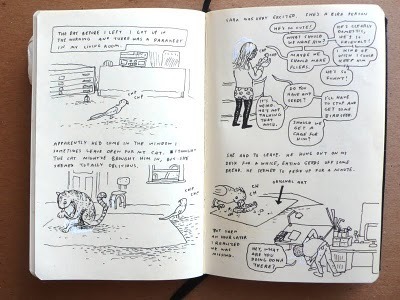 THE DAY BEFORE I LEFT, I GOT UP IN
THE MORNING AND THERE WAS A PARAKEET
IN MY LIVING ROOM.
CHP
CHP
APPARENTLY HE'D COME IN THE WINDOW I
SOMETIMES LEAVE OPEN FOR MY CAT. I THOUGHT
THE CAT MIGHT'VE BROUGHT HIM IN, BUT SHE
SEEMED TOTALLY OBLIVIOUS.
CHP
CHP
SARA WAS VERY EXCITED. SHE'S A BIRD PERSON
HE'S SO CUTE!
WHAT SHOULD
WE NAME HIM?
HE'S CLEARLY
DOMESTIC,
HE'S SO
FRIENDLY!
MAYBE WE
SHOULD MAKE
FLIERS.
I KIND OF
WISH I COULD
KEEP HIM
HE'S SO
FUNNY!
DO YOU
HAVE ANY
SEEDS?
IT'S
WEIRD.
HE'S NOT
TALKING
THAT
MUCH.
I'LL HAVE
TO STOP AND
GET SOME
BIRDSEED.
SHOULD WE
GET A
CAGE FOR
HIM?
SHE HAD TO LEAVE. HE HUNG OUT ON MY
DESK FOR A WHILE, EATING SEEDS OFF SOME
BREAD. HE SEEMED TO PERK UP FOR A MINUTE.
BUT THEN
AN HOUR LATER
I REALIZED
HE WAS
MISSING.
HEY, WHAT
ARE YOU
DOING DOWN
THERE?